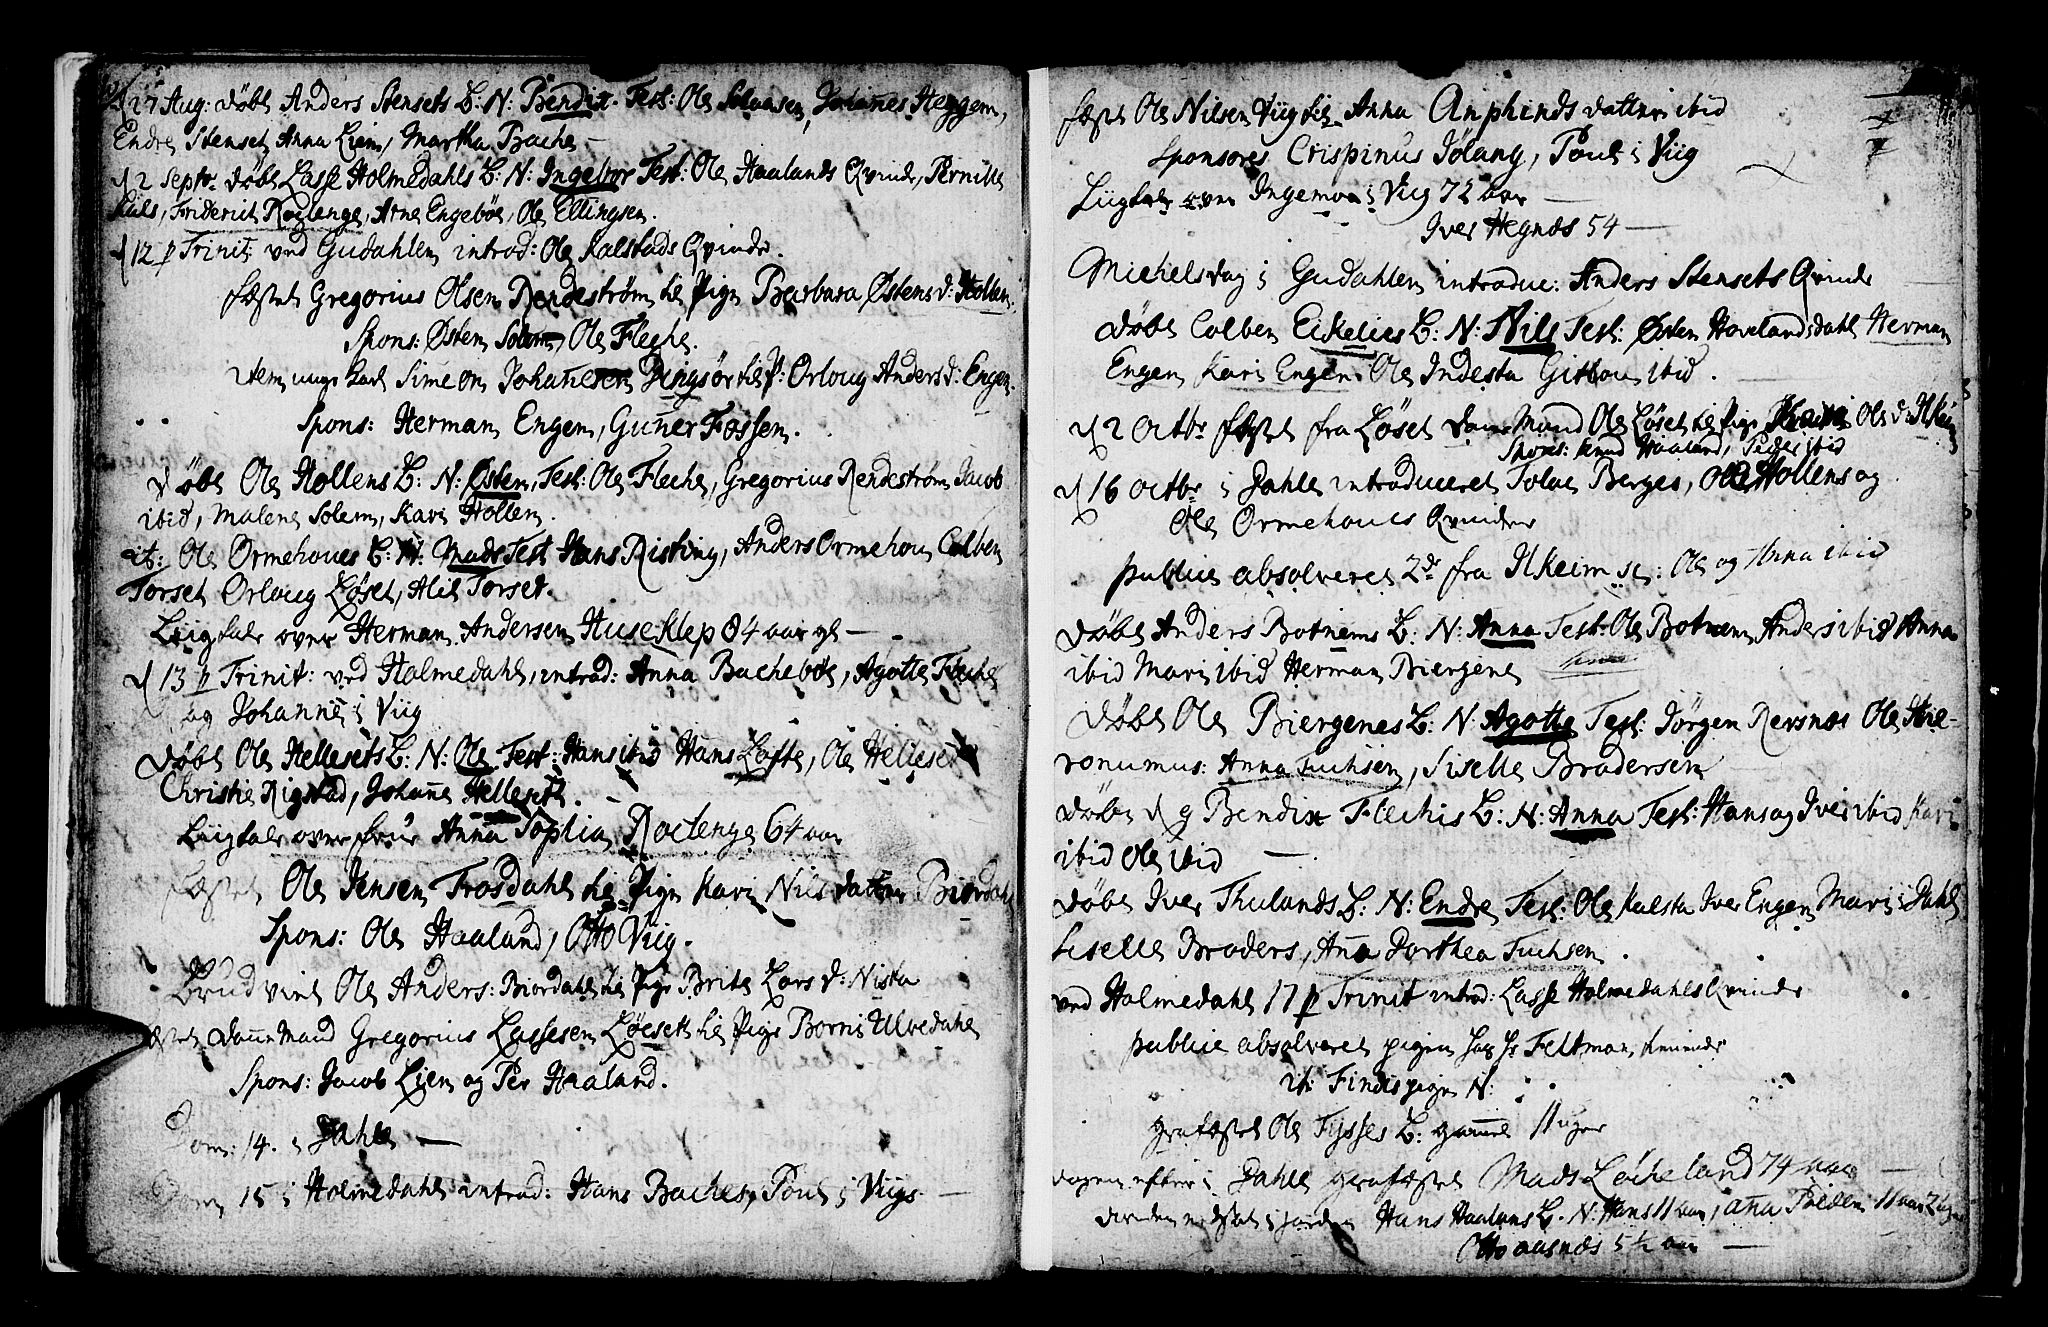 d 27 Aug: døbt Anders Stensets B: N: Bendix. Test: Ole Solvaasen, Johannes Heggem,
Endre Stenset, Anna Lien, Martha Bache
d 2 Septr. døbt Lasse Holmedahls B: N: Ingebor Test: Ole Haalands Qvinde, Pernille
Friderich Røglenge, Arne Engebøe, Ole Ellingsen.
d 12 p Trinit: ved Gudahlen introd: Ole Kalstads Qvinde.
fæstet Gregorius Olsen Rendestrøm til Pige Barbara Østens d: Hollen
Spons: Østen Solem, Ole Fleche.
item unge Karl Simeon Johannesen Dingsør til P: Orloug Anders d: Engen.
Spons: Herman Engen, Guner Fossen.
døbt Ole Hollens B: N: Østen, Test: Ole Fleche, Gregorius Rendestrøm Jacob
ibid, Malene Solem, Kari Hollen.
it: Ole Ormehoues B: N: Mads Test Hans Risting, Anders Ormehou, Colben
Torset Orloug Løset, Alis Torset.
Liigtale over Herman Andersen Huseklep 84 aar gl
d 13 p Trinit: ved Holmedahl, introd: Anna Bachebøe, Agotte Fleche
og Johanne i Viig
døbt Ole Hellesets B: N: Ole Test: Hans ibid Hans Løfte, Ole Helleset
Christie Rigstad, Johanne Helleset.
Liigtale over frue Anna Sophia Roelenge 64 aar
fæstet Ole Jensen Trosdahl til Pige Kari Nils datter Biordahl
Spons: Ole Haaland, Otto Viig.
Brudviet Ole Anders: Biordahl til Pige Brite Lars d: Nista
fæstet danneMand Gregorius Lassesen Løeset til Pige Borni Ulvedahl
Spons: Jacob Lien og Per Haaland.
Dom: 14. i Dahle
Dom 15 i Holmedahl introd: Hans Baches, Poul i Viigs
fæstet Ole Nilsen Viig til Anna Anphinds datter ibid
Sponsores Crispinus Jølang, Poul i Viig
Liigtale over Ingemoe i Viig 72 aar
Iver Hegnæs 54
Michelsdag i Gudahlen introduc: Anders Stensets Qvinde
døbt Colben Eikelies B: N: Nils Test: Østen Hovelandsdahl Herman
Engen, Kari Engen Ole Indesta Gitlou ibid.
d 2 Octbr fæstet fra Løset danneMand Ole Løset til Pige Kari Ole d: Ilkeim
Spons: Knud Haaland, Peder ibid
d 16 octbr i Dahle introduceret Tolae Berges, Ole Hollens og
Ole Ormehoues Qvinder
public absolveret 2de fra Ilkeim sc: Ole og Anna ibid
døbt Anders Botnems B: N: Anna Test: Ole Botnem Anders ibid Anna
ibid Mari ibid Herman Biergene
døbt Ole Biergenes B: N: Agothe Test: Jørgen Revsnæs Ole Hie-
ronumus: Anna Fuchsen, Siselle Brodersen
døbt d 9 Bendix Flechis B: N: Anna Test: Hans og Iver ibid Kari
ibid Ole ibid
døbt Iver Thulands B: N: Endre Test: Ole Kalsta Iver Engen Mari i Dahl
Siselle Broders, Ana Dorthea Fuchsen.
ved Holmedahl 17 p Trinit introd: Lasse Holmedahls Qvinde
public absolveret pigen Feltman
it: Findis pigen N:
grafæstet Ole Tysses B: gamel 11 uger
dagen efter i Dahle grafæstet Mads Løcheland 74 aar
Hans Haalans B. N: Hans 11 aar, ana Tielden 11 aar 2 uger
Otto aasnæs 5 ½ aar